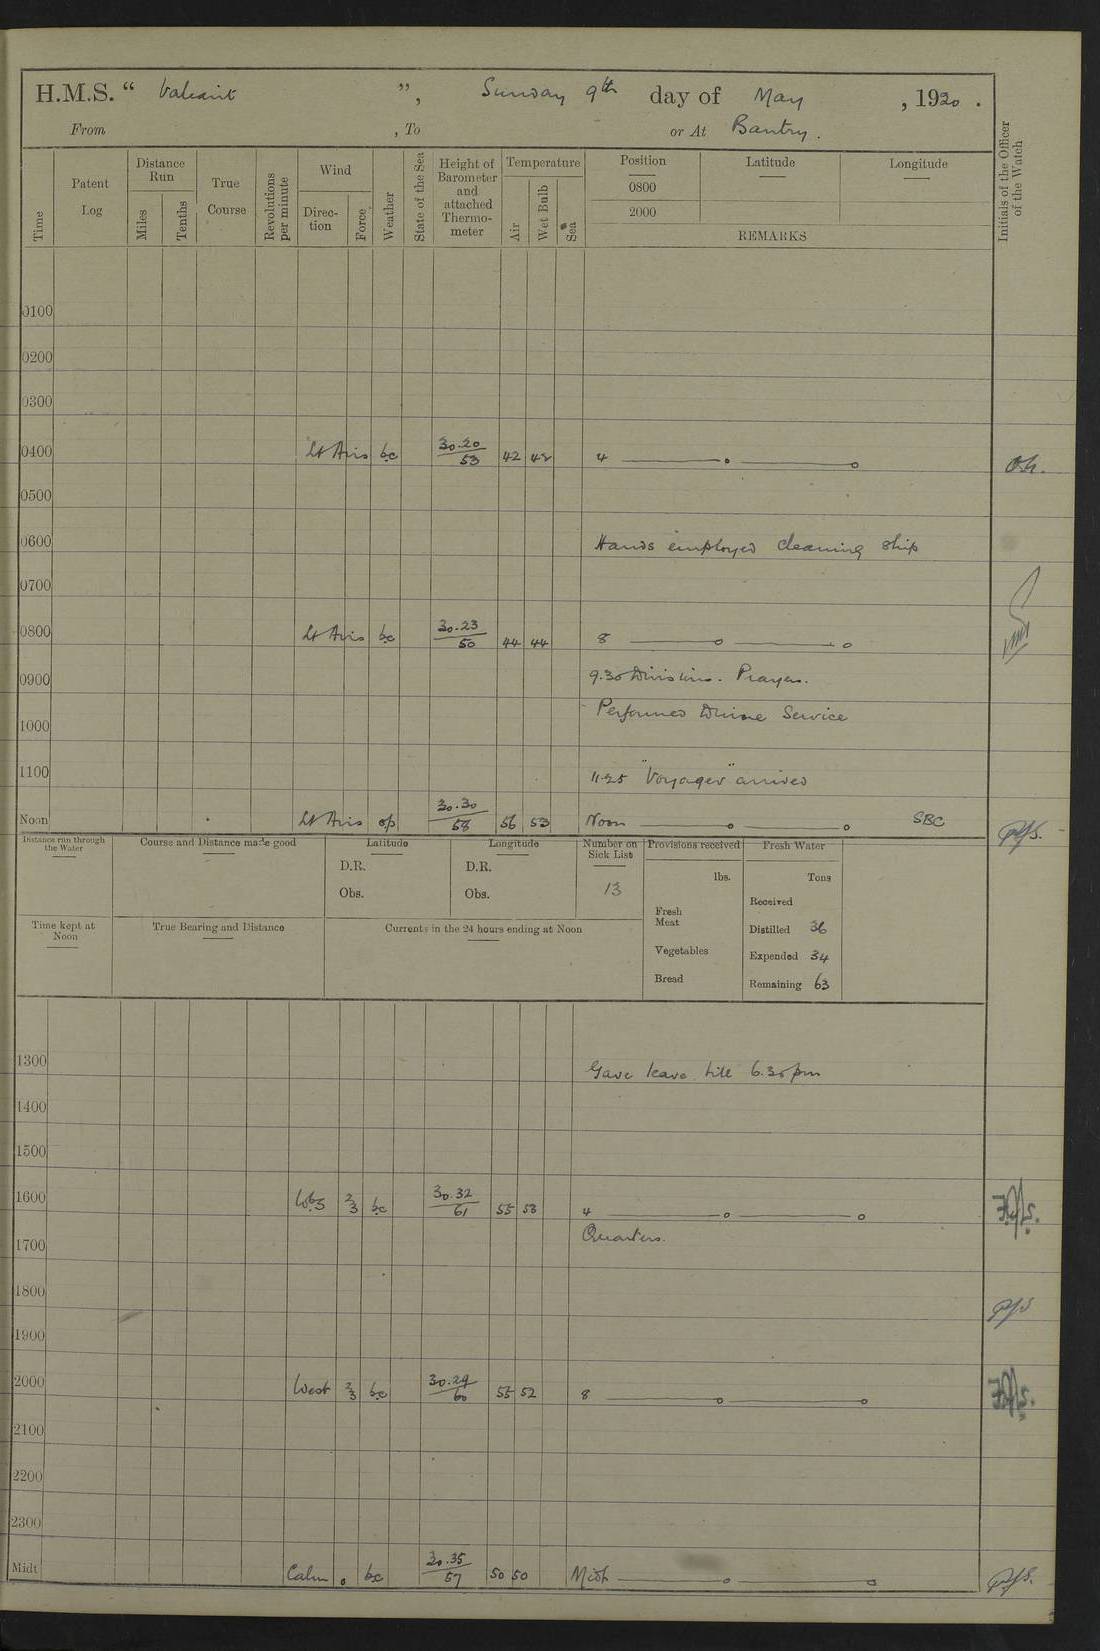 H.M.S. “ Valiant ”, Sunday 9th day of May , 1920 .
From , To or At Bantry .
Time
Patent Log
Distance Run
Miles
Tenths
True Course
Revolutions per minute
Wind
Direction
Force
Weather
State of the Sea
Height of Barometer and attached Thermometer
Temperature
Air
Wet Bulb
Sea
Position Latitude Longitude
0800
2000
REMARKS
Initials of the Officer of the Watch
0100
0200
0300
0400 Lt Airs bc 30.20 53 42 42 4
0500
0600 Hands employed cleaning ship
0700
0800 Lt Airs bc 30.23 50 44 44 8
0900 9.30 Divisions. Prayers.
1000 Performed Divine Service
1100 11.25 "Voyager" arrived
Noon Lt Airs op 30.30 58 56 53 Noon SBC
Distance run through the Water
Course and Distance made good
Latitude
D.R.
Obs.
Longitude
D.R.
Obs.
Number on Sick List
13
Provisions received
lbs.
Fresh Meat
Vegetables
Bread
Fresh Water
Tons
Received
Distilled 36
Expended 34
Remaining 63
Time kept at Noon
True Bearing and Distance
Currents in the 24 hours ending at Noon
1300 Gave leave till 6.30 pm
1400
1500
1600 2 3 bc 30.32 61 55 53 4
1700 Quarters.
1800
1900
2000 West 2 3 bc 30.29 60 55 52 8
2100
2200
2300
Midt Calm 0 bc 30.35 57 50 50 Midt